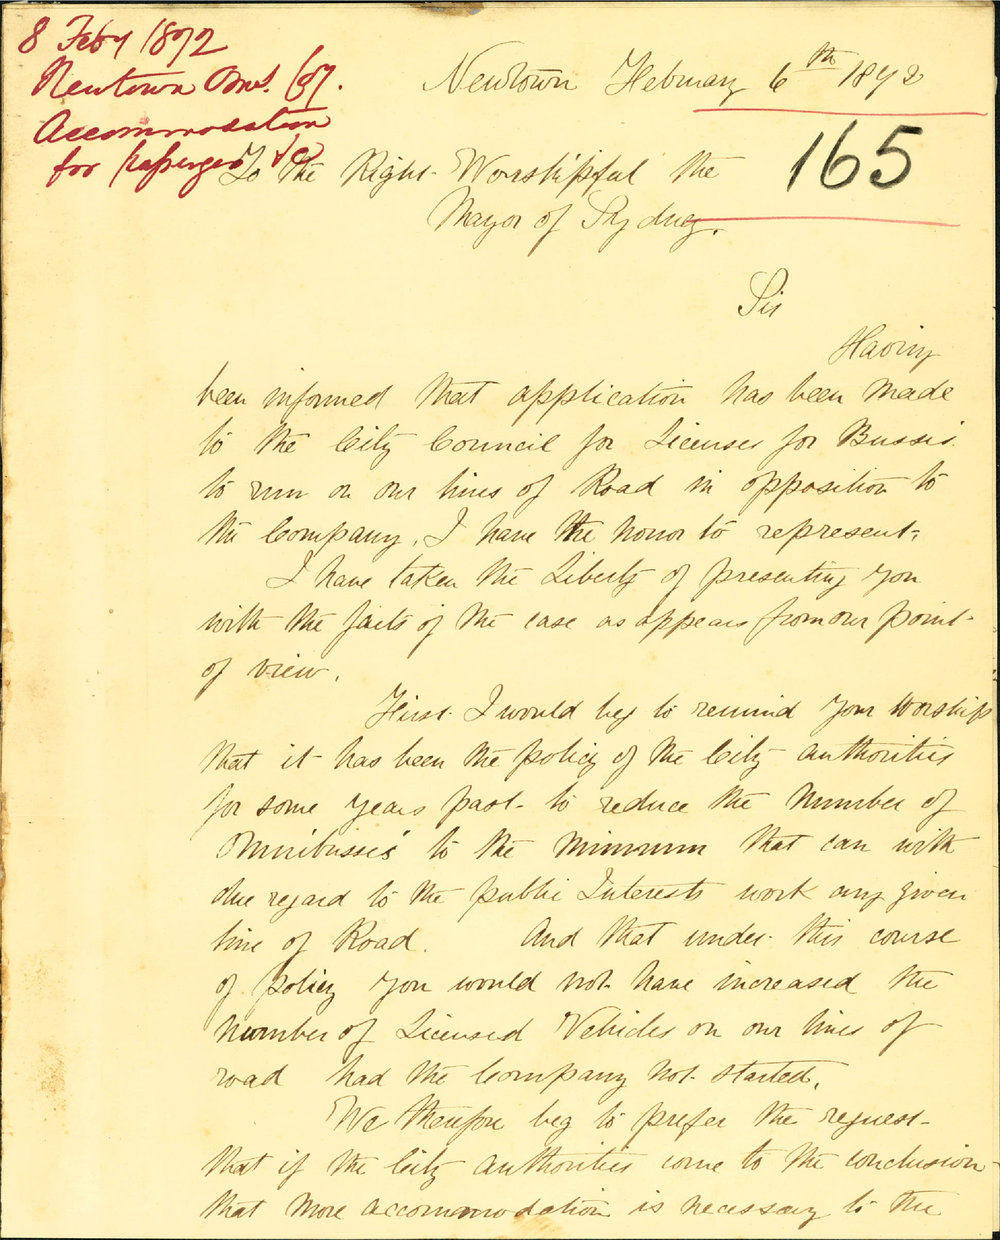 8 Feby 1872
Newtown Oms. Coy.
Accommodation
for passengers &c
Newtown February 6th 1872
165
To the Right Worshipful the
Mayor of Sydney.
Sir
Having
been informed that application has been made
to the City Council for Licenses for Busses
to run on our lines of Road in opposition to
the Company, I have the honor to represent,
I have taken the Liberty of presenting you
with the facts of the case as appears from our point
of view.
First I would beg to remind your Worship
that it has been the policy of the City authorities
for some years past to reduce the number of
Omnibusses to the minimum that can with
due regard to the public Interests work any given
line of Road. And that under this course
of policy you would not have increased the
number of Licensed Vehicles on our lines of
road had the Company not started.
We therefore beg to prefer the request
that if the City authorities come to the conclusion
that more accommodation is necessary to the